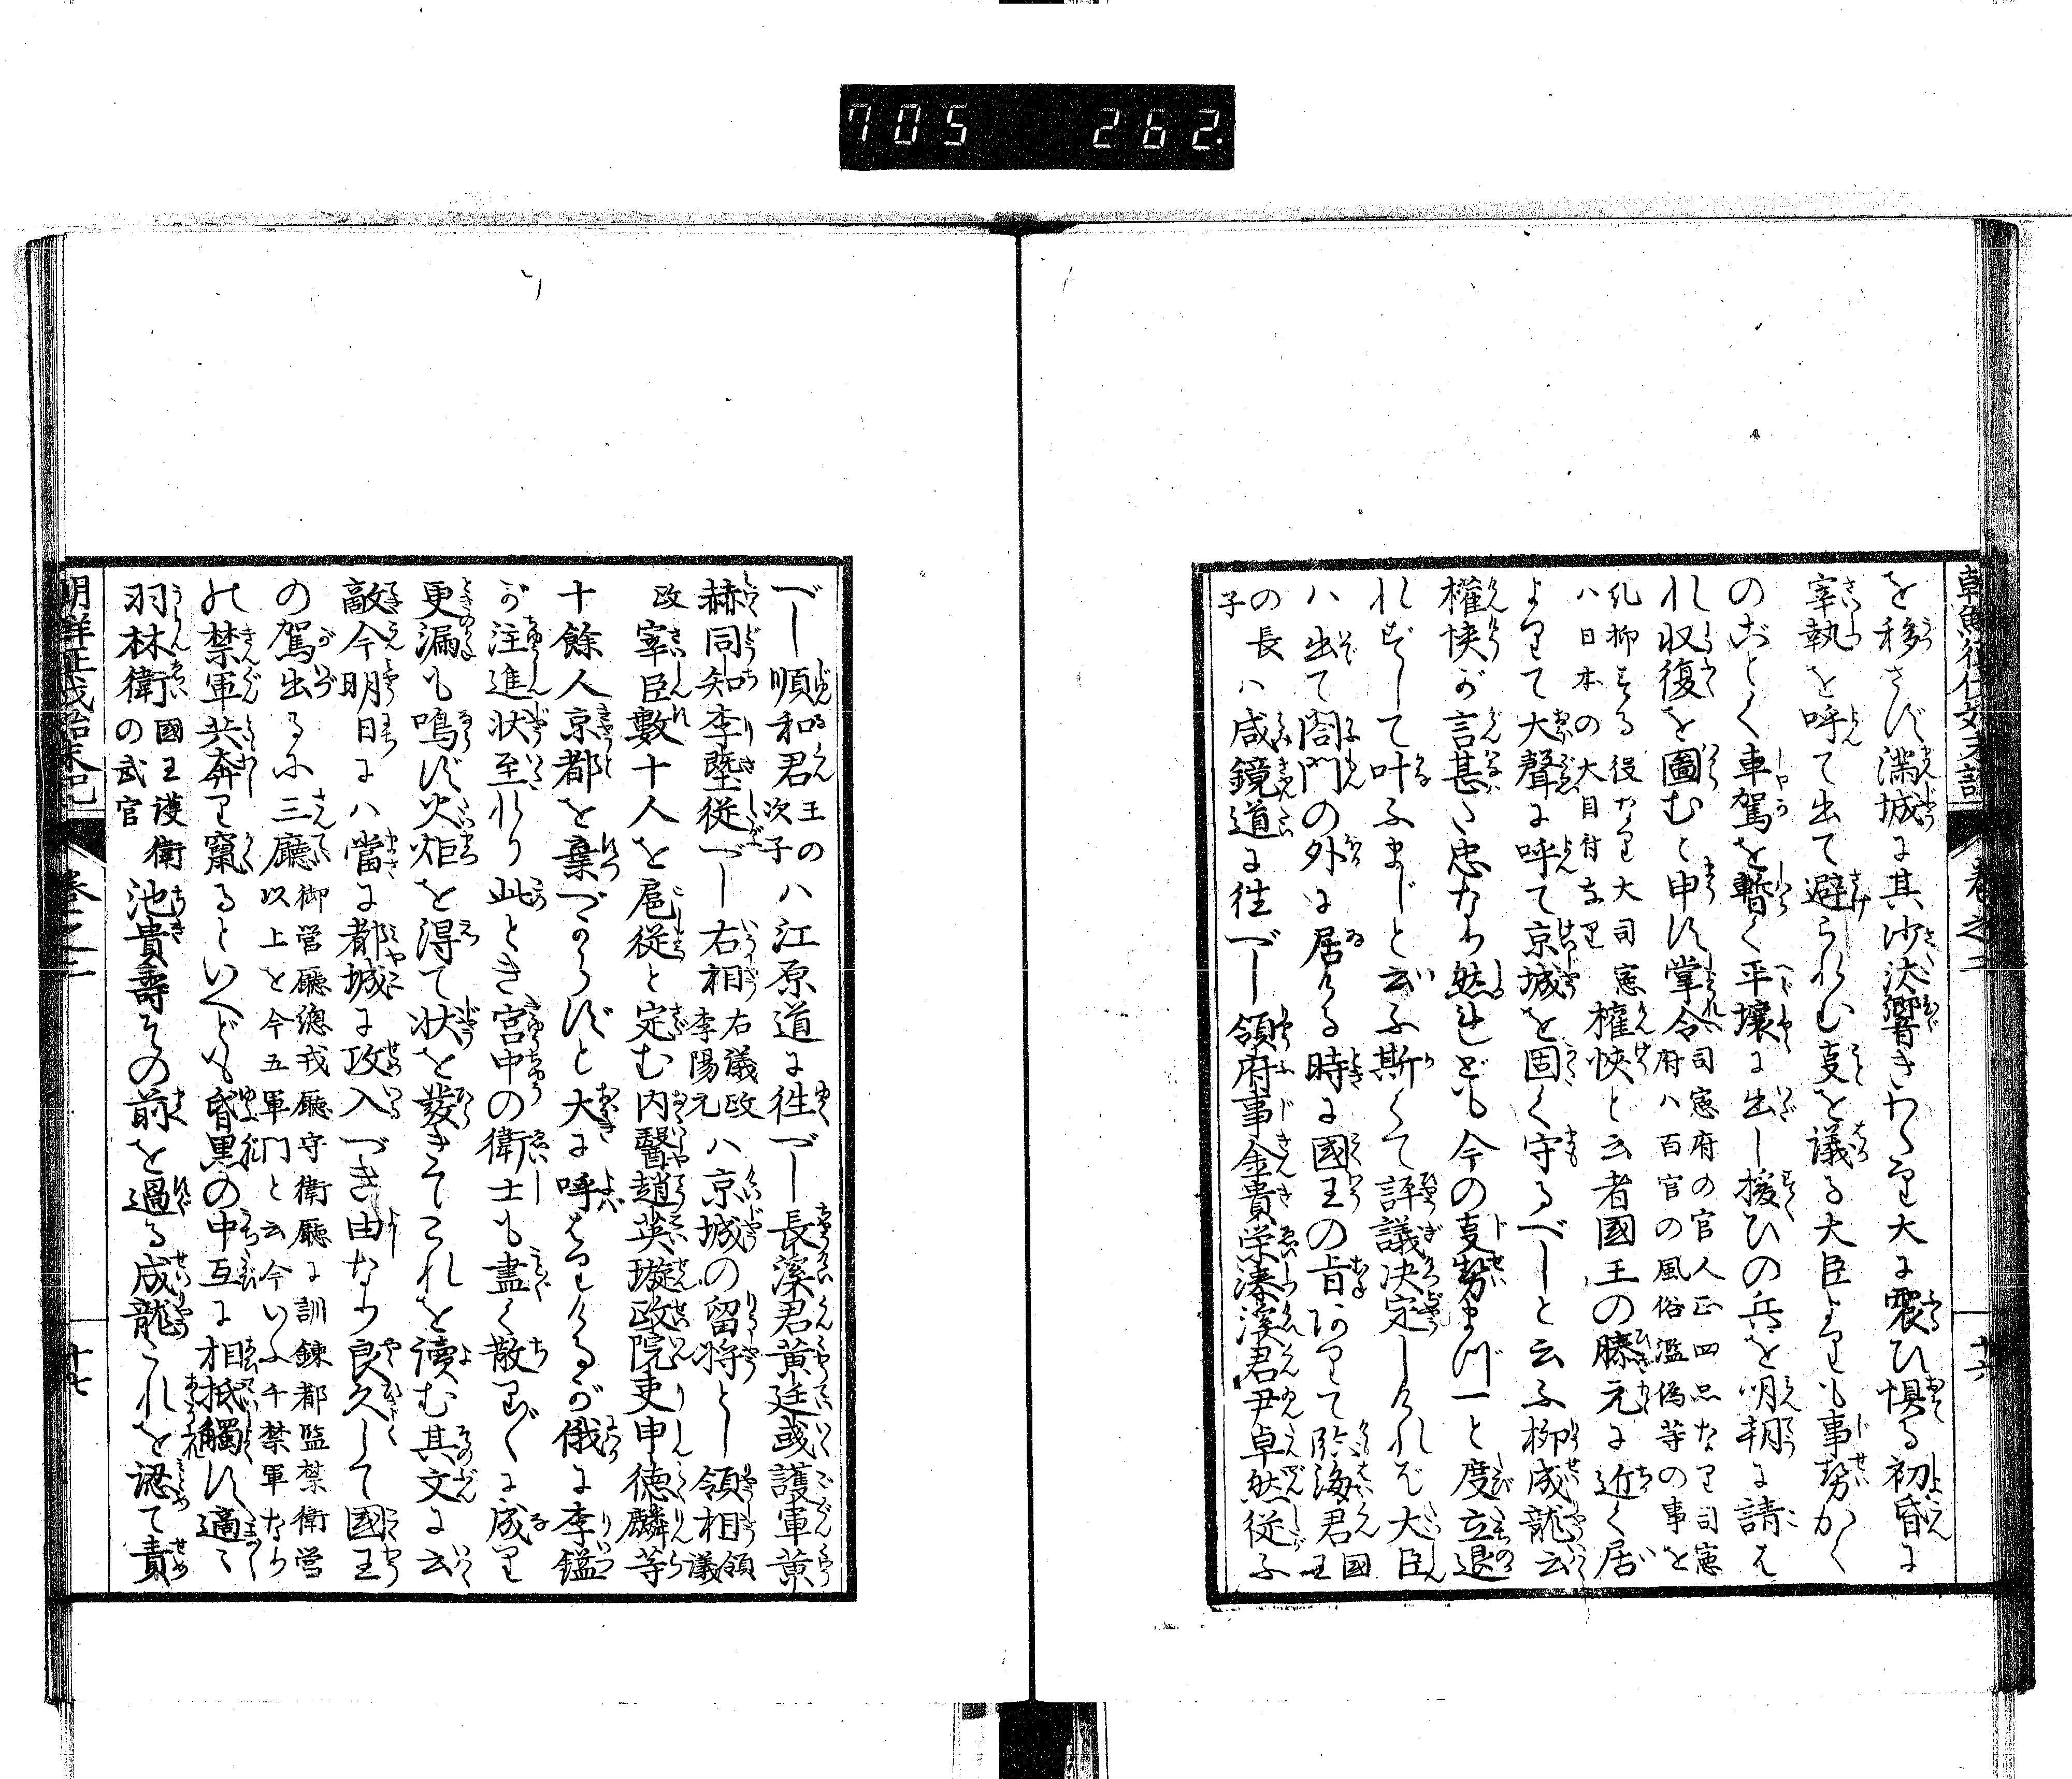 705 262.
を移さず滿城に其沙汰響きわたり大に震ひ惧る初昏に
宰執を呼て出て避られむ支を議る大臣よりも事勢かく
のごとく車駕を暫く平壤に出し援ひの兵を明朝に請は
れ収復を圖むと申す掌令司憲府の官人正四品なり司憲
府ハ百官の風俗濫偽等の事を
糺抑する役なり大司憲
ハ日本の大目付なり權悏と云者國王の膝元に近く居
よりて大聲に呼て京城を固く守るべしと云ふ柳成龍云
權悏が言甚だ忠なり然れども今の支勢まづ一と度立退
れずして叶ふまじと云ふ斯くて評議決定しければ大臣
ハ出て閤門の外に居ける時に國王の旨ありて臨海君國王
の長
子ハ咸鏡道に徃べし領府事金貴栄漆溪君尹卓然從ふ
卷之二
十六
べし順和君王の
次子ハ江原道に徃べし長溪君黄廷彧護軍黄
赫同知李墍從べし右相右議政
李陽元ハ京城の留將とし領相領
議
政宰臣數十人を扈從と定む内醫趙英璇政院吏申德麟等
十餘人京都を棄べからずと大に呼はりけるが俄に李鎰
が注進状至れり此とき宮中の衛士も盡く散りぢりに成り
更漏も鳴ず火炬を得て状を發きてこれを讀む其文に云
敵今明日にハ當に都城に攻入べき由なり良久して國王
の駕出るに三廳御営廳總戎廳守衛廳に訓錬都監禁衛営
以上を今五軍门と云今いふ千禁軍なり
の禁軍共奔り竄るといへども昏黒の中互に相抵觸す適〻
羽林衛國王護衛
の武官池貴壽その前を過る成龍これを認て責
卷之二
十七